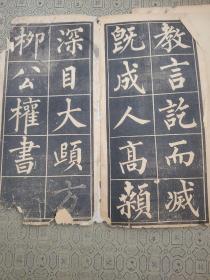 教言訖而滅
既成人高顙
深目大頤方
柳公權書